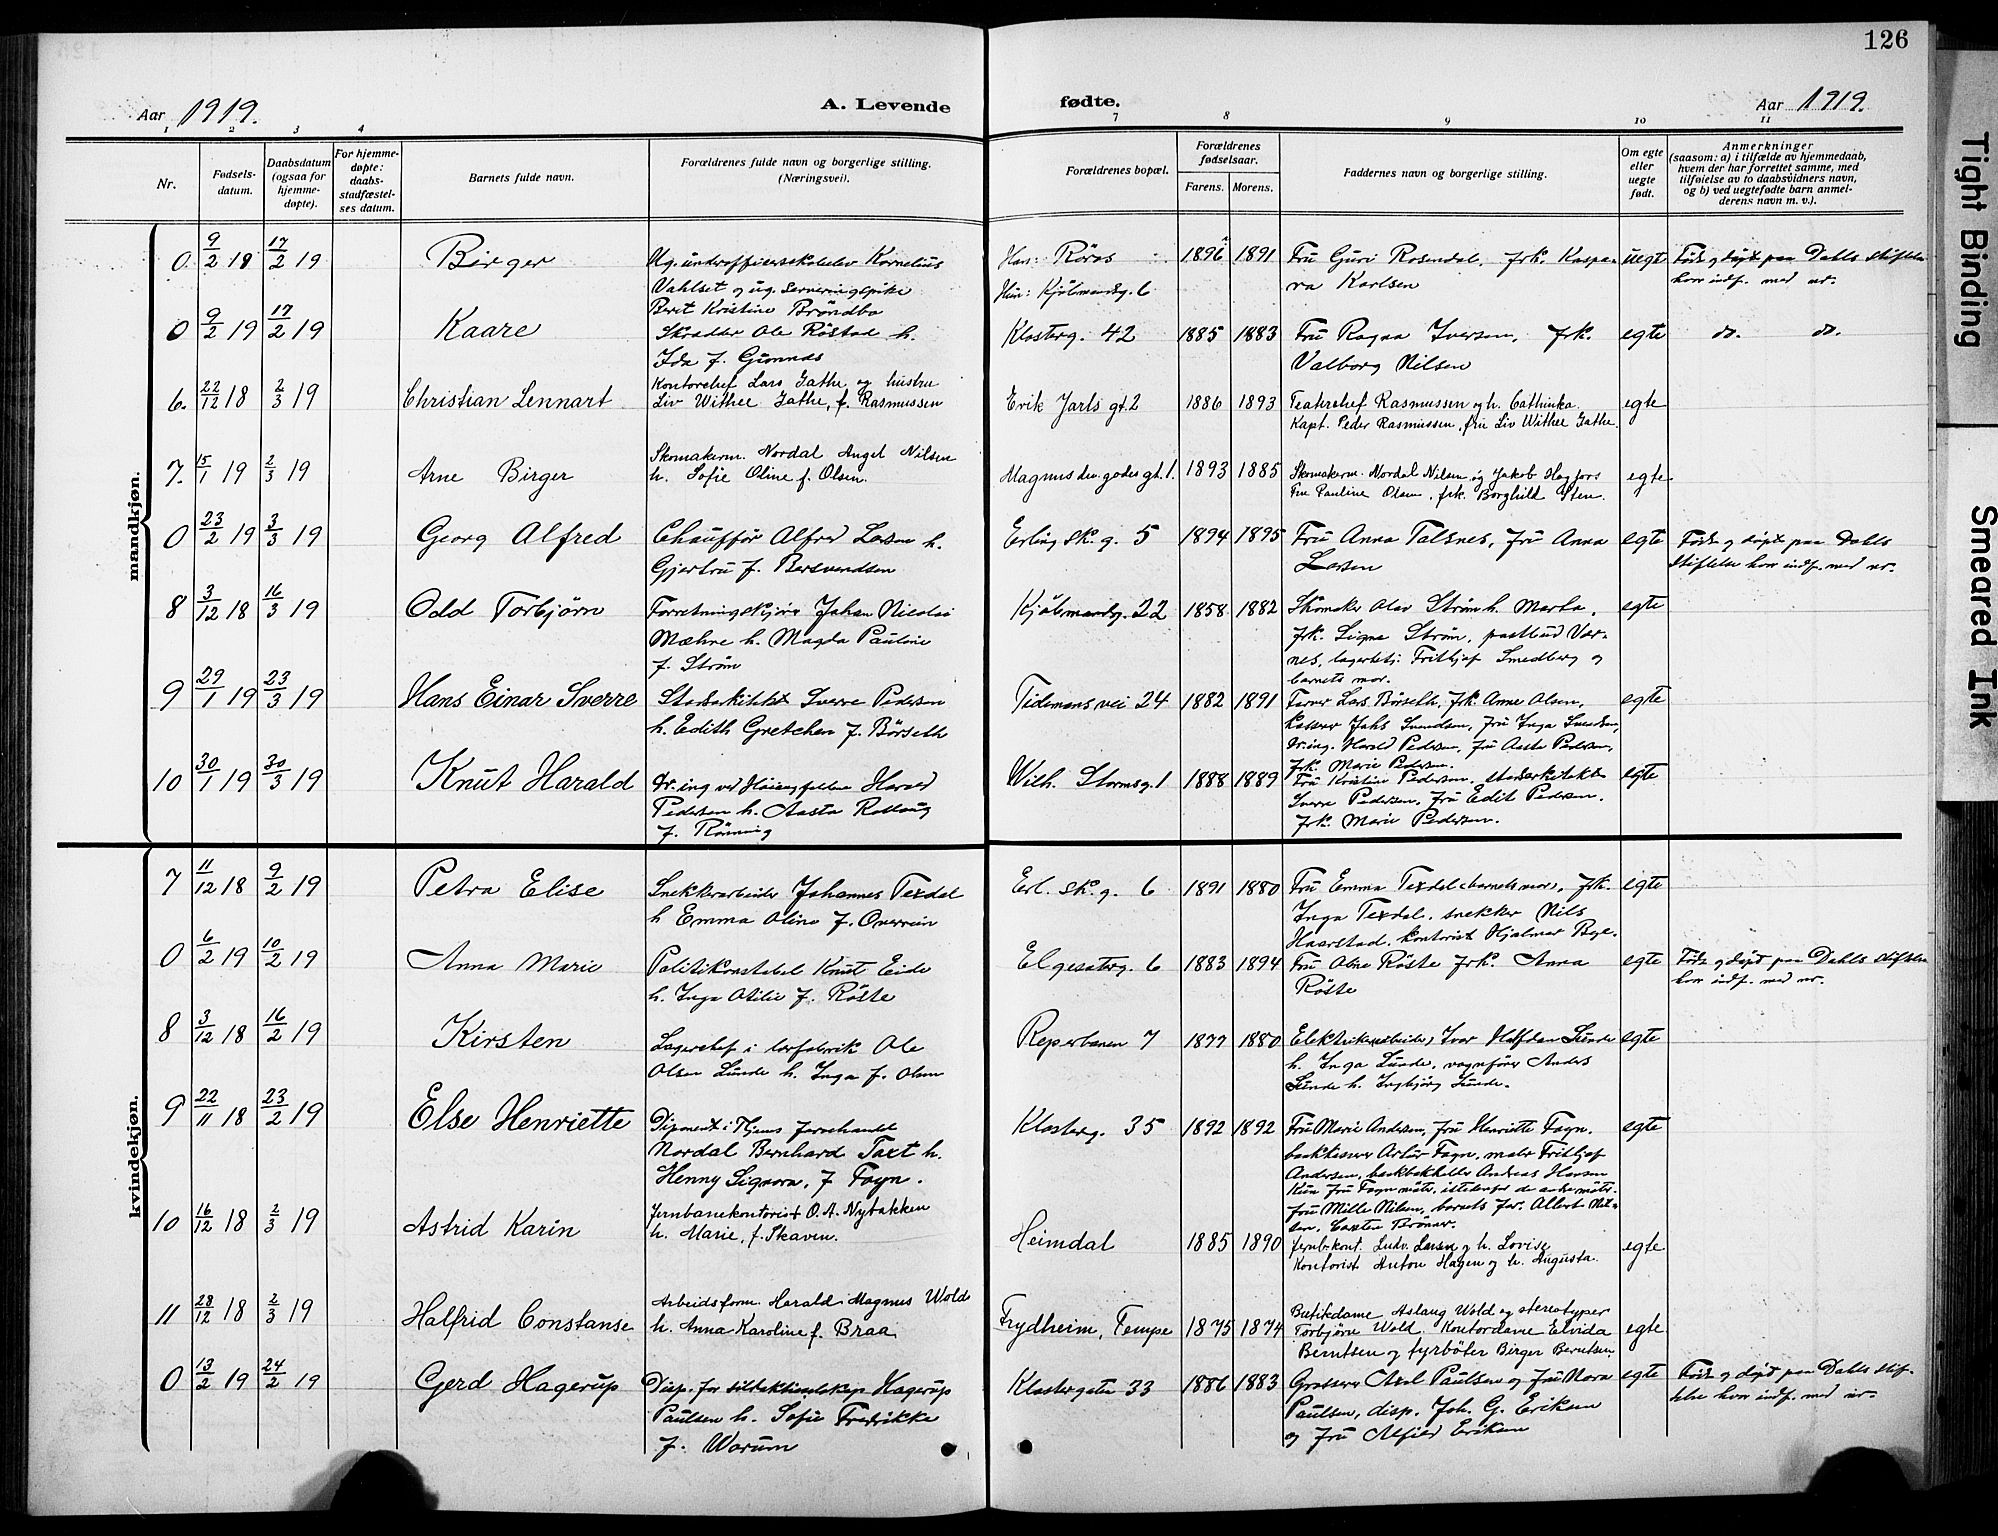 126
Aar 1919.
A. Levende
fødte.
Aar 1919.
1 2 3 4 7 8 9 10 11
Nr.
Fødsels-
datum.
Daabsdatum
(ogsaa for
hjemme-
døpte).
For hjemme-
døpte:
daabs-
stadfæstel-
ses datum.
Barnets fulde navn.
Forældrenes fulde navn og borgerlige stilling.
(Næringsvei).
Forældrenes bopæl.
Forældrenes
fødselsaar.
Farens. Morens.
Faddernes navn og borgerlige stilling.
Om egte
eller
uegte
født.
Anmerkninger
(saasom: a) i tilfælde av hjemmedaab,
hvem der har forrettet samme, med
tilføielse av to daabsvidners navn,
og b) ved uegtefødte barn anmel-
derens navn m. v.).
mandkjøn.
0 9/2 18 17/2 19 Birger
Ug. underofficersskoleelev Kornelius
Vahlset og ug. Serveringspike
Berit Kristine Brøndbo
Han: Røros
Hun: Kjøbmandsg. 6
1896 1891
Fru Guri Rosendal, frk. Kaspa-
ra Karlsen
uegt
Født og døpt paa Dahls stiftelse
hvor indf. med nr.
0 9/2 19 17/2 19 Kaare
Skrædder Ole Røstad h.
Ida f. Gunnes
Klosterg. 42 1885 1883
Fru Ragna Iversen, frk.
Valborg Nilsen
egte do. do.
6. 22/12 18 2/3 19 Christian Lennart
Kontorchef Lars Gathe og hustru
Liv Withee Gathe, f. Rasmussen
Erik Jarls gt. 2 1886 1893
Teaterchef Rasmussen og h. Cathinka
Kapt. Peder Rasmussen, fru Liv Withee Gathe.
egte
7. 15/1 19 2/3 19 Arne Birger
Skomakerm. Nordal Angel Nilsen
h. Sofie Oline f. Olsen.
Magnus den godes gt. 1. 1893 1885
Skomakerm. Nordal Nilsen og Jakob Hagfors
Fru Pauline Olsen, frk. Borghild Sten.
egte
0 23/2 19 3/3 19 Georg Alfred
Chauffør Alfred Larsen h.
Gjertru f. Bersvendsen
Erling sk. g. 5 1894 1895
Fru Anna Talsnes, Fru Anna
Larsen
egte
Født og døpt paa Dahls
Stiftelse hvor indf. med nr.
8 3/12 18 16/3 19 Odd Torbjørn
Forretningskjører Johan Nicolai
Mæhre h. Magda Pauline
f. Strøm
Kjøbmandsg. 22 1858 1882
Skomaker Olav Strøm h. Marta.
frk. Signe Strøm, postbud Vær-
nes, lagerbetj. Frithjof Smedberg og
barnets mor.
egte
9 29/1 19 23/3 19 Hans Einar Sverre
Stadsarkitekt Sverre Pedersen
h. Edith Gretchen f. Børseth
Tidemansvei 24 1882 1891
Farver Lars Børseth, Frk. Anne Olsen,
Kasserer Johs Svendsen, Fru Inga Svendsen,
dr. ing. Harald Pedersen, Fru Aasta Pedersen,
Frk. Marie Pedersen.
egte
10 30/1 19 30/3 19 Knut Harald
Dr. ing ved Høiengfallene Harald
Pedersen h. Aasta Rollaug
f. Rønning
Wilh. Stormsg. 1 1888 1889
Fru Kristine Pedersen, stadsarkitekt
Sverre Pedersen, Fru Edit Pedersen.
Frk. Marie Pedersen.
egte
kvindekjøn.
7 11/12 18 9/2 19 Petra Elise
Snekkerarbeider Johannes Texdal
h Emma Oline f. Overvein
Erl. sk. g. 6 1891 1880
Fru Emma Texdal (barnets mor), frk.
Inga Texdal. snekker Nils
Haarstad. Kontorist Hjalmar Bye.
egte
0 6/2 19 10/2 19 Anna Marie
Politikonstabel Knut Eide
h. Inga Otilie f. Røste
Elgesæterg. 6 1883 1894
Fru Oline Røste frk. Anna
Røste
egte
Født og døpt paa Dahls stiftelse
hvor indf. med nr.
8 3/12 18 16/2 19 Kirsten
Lagerchef i lærfabrik Ole
Olsen Sunde h. Inga f. Olsen
Reperbanen 7 1877 1880
Elektrikerarbeider Ivar Halfdan Sunde
h. Inga Sunde, vognfører Anders
Sunde h. Ingbjørg Sunde.
egte
9 22/11 18 23/2 19 Else Henriette
Disponent i Thjems farvehandel
Nordal Bernhard Taxt h.
Henny Signora, f Fagn.
Klosterg. 35 1892 1892
Fru Marie Andersen, Fru Henriette Fagn.
bankkasserer Artur Fagn, maler Frithjof
Andersen, bankbokholder Andreas Hansen
Kun Fru Fagn møtte, istedenfor de andre møtte
Fru Mille Nilsen, barnets far. Albert Nil-
sen, Carsten Brønner.
egte
10 16/12 18 2/3 19 Astrid Karin
Jernbanekontorist O. A. Nybakken
h. Marie, f. Skaven.
Heimdal 1885 1890
Jernb.kont. Ludv. Larsen og h. Lovise
Kontorist Anton Hagen og h. Augusta.
egte
11 28/12 18 2/3 19 Halfrid Constanse
Arbeidsform. Harald Magnus Wold
h. Anna Karoline f. Braa
Frydheim, Tempe 1875 1874
Butikdame Aslaug Wold og stereotyper
Torbjørn Wold. Kontordame Elvida
Berntsen og fyrbøter Birger Berntsen
egte
0 13/2 19 24/2 19 Gerd Hagerup
Disp. for sildaktieselskap Hagerup
Paulsen h. Sofie Fredrikke
f. Worum
Klostergaten 33 1886 1883
Grosserer Axel Paulsen og Fru Nora
Paulsen, disp. Joh. G. Eriksen
og Fru Alfild Eriksen
egte
Født og døpt paa Dahls stif-
telse hvor indf. med nr.
Tight Binding
Smeared Ink